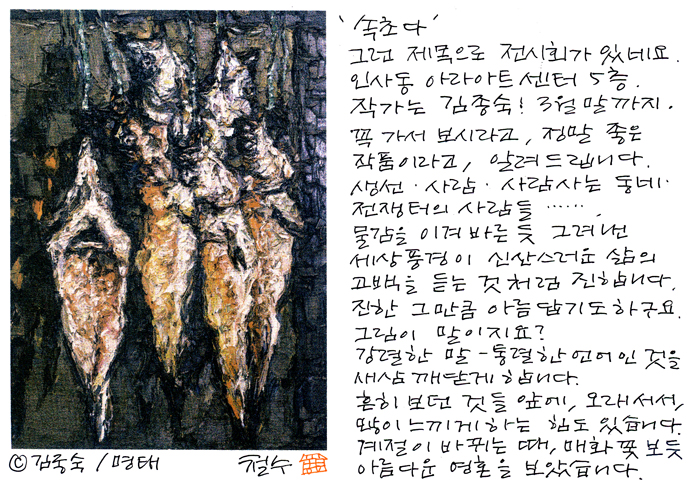 '속초다'
그런 제목으로 전시회가 있네요.
인사동 아라아트센터 5층.
작가는 김종숙! 3월말까지.
꼭 가서 보시라고, 정말 좋은
작품이라고, 알려드립니다.
생선·사람·사람사는 동네·
전쟁터의 사람들 …….
물감을 이겨바른듯 그려낸
세상풍경이 신산스러운 삶의
고백을 듣는 것처럼 진합니다.
진한 그만큼 아름답기도하구요.
그림이 말이지요?
강렬한 말-통렬한 언어인 것을
새삼 깨닫게 합니다.
흔히 보던 것들 앞에, 오래서서,
많이 느끼게 하는 힘도 있습니다.
계절이 바뀌는 때, 매화꽃 보듯
아름다운 영혼을 보았습니다.
©김종숙 / 명태
철수